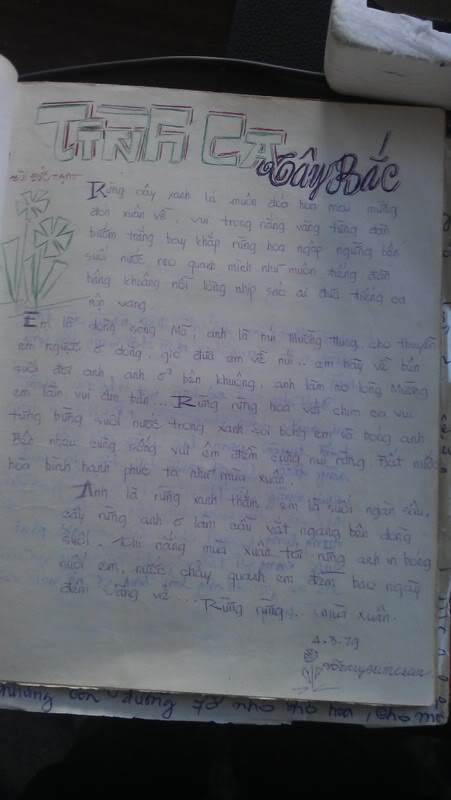 TÌNH CA
Tây Bắc
Rừng cây xanh lá muôn đoá hoa mai mừng
đón xuân về, vui trong nắng vàng từng đàn
bướm trắng bay khắp rừng hoa ngập ngừng bên
suối nước reo quanh mình như muôn tiếng đàn
bâng khuâng nổi lòng nhịp sáo ai đưa tiếng ca
rộn vang
Em là dòng sông Mã, anh là núi Mường Hung, cho thuyền
em ngược dòng, gió đưa em về núi... em hãy về bên
suối đợi anh, anh ở bên khuông, anh làm nỏ lòng Mường
em làn vui đưa bản... Rừng rừng hoa với chim ca vui
tưng bừng suối nước trong xanh soi bóng em và bóng anh
Bên nhau cùng sống vui êm đềm cùng núi rừng Đất nước
hoà bình hạnh phúc ta như mùa xuân.
Anh là rừng xanh thẳm.. em là suối ngàn sâu.
cây rừng anh làm cầu vắt ngang bên dòng
suối. Khi nắng mùa xuân tới rừng anh in bóng
suối em, nước chảy quanh em đêm bao ngày
đêm vắng vẻ.... Rừng rừng... mùa xuân.
4.3.79
những con đường